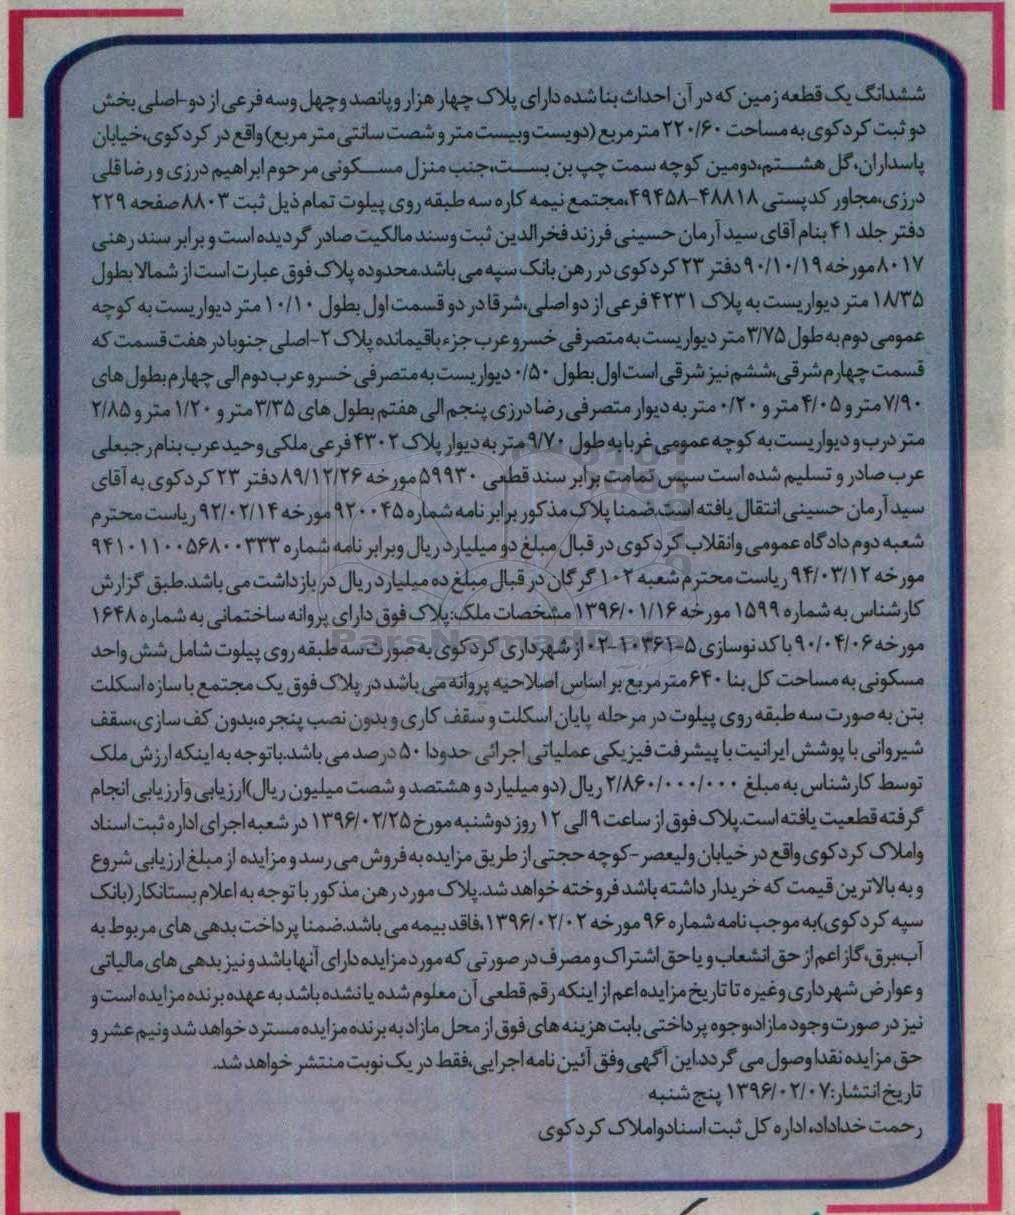 ششدانگ یک قطعه زمین که در آن احداث بنا شده دارای پلاک چهار هزار و پانصد و چهل و سه فرعی از دو-اصلی بخش
دو ثبت کردکوی به مساحت ۲۲۰/۶۰ متر مربع (دویست و بیست متر و شصت سانتی متر مربع) واقع در کردکوی،خیابان
پاسداران،گل هشتم،دومین کوچه سمت چپ بن بست،جنب منزل مسکونی مرحوم ابراهیم درزی و رضا قلی
درزی،مجاور کدپستی ۴۸۸۱۸-۴۹۴۵۸،مجتمع نیمه کاره سه طبقه روی پیلوت تمام ذیل ثبت ۸۸۰۳ صفحه ۲۲۹
دفتر جلد ۴۱ بنام آقای سید آرمان حسینی فرزند فخرالدین ثبت و سند مالکیت صادر گردیده است و برابر سند رهنی
۸۰۱۷ مورخه ۹۰/۱۰/۱۹ دفتر ۲۳ کردکوی در رهن بانک سپه می باشد.محدوده پلاک فوق عبارت است از شمالا بطول
۱۸/۳۵ متر دیواریست به پلاک ۴۲۳۱ فرعی از دو اصلی،شرقا در دو قسمت اول بطول ۱۰/۱۰ متر دیواریست به کوچه
عمومی دوم به طول ۳/۷۵ متر دیواریست به متصرفی خسرو عرب جزء باقیمانده پلاک ۲-اصلی جنوبا در هفت قسمت که
قسمت چهارم شرقی،ششم نیز شرقی است اول بطول ۰/۵۰ دیواریست به متصرفی خسرو عرب دوم الی چهارم بطول های
۷/۹۰ متر و ۴/۰۵ متر و ۰/۲۰ متر به دیوار متصرفی رضا درزی پنجم الی هفتم بطول های ۳/۳۵ متر و ۱/۲۰ متر و ۲/۸۵
متر درب و دیواریست به کوچه عمومی غربا به طول ۹/۷۰ متر به دیوار پلاک ۴۳۰۲ فرعی ملکی وحید عرب بنام رجبعلی
عرب صادر و تسلیم شده است سپس تمامت برابر سند قطعی ۵۹۹۳۰ مورخه ۸۹/۱۲/۲۶ دفتر ۲۳ کردکوی به آقای
سید آرمان حسینی انتقال یافته است.ضمنا پلاک مذکور برابر نامه شماره ۹۲۰۰۴۵ مورخه ۹۲/۰۲/۱۴ ریاست محترم
شعبه دوم دادگاه عمومی وانقلاب کردکوی در قبال مبلغ دو میلیارد ریال وبرابر نامه شماره ۹۴۱۰۱۱۰۰۵۶۸۰۰۳۳۳
مورخه ۹۴/۰۳/۱۲ ریاست محترم شعبه ۱۰۲ گرگان در قبال مبلغ ده میلیارد ریال در بازداشت می باشد.طبق گزارش
کارشناس به شماره ۱۵۹۹ مورخه ۱۳۹۶/۰۱/۱۶ مشخصات ملک:پلاک فوق دارای پروانه ساختمانی به شماره ۱۶۴۸
مورخه ۹۰/۰۴/۰۶ با کد نوسازی ۵-۱۰۳۶۱-۰۲ از شهرداری کردکوی به صورت سه طبقه روی پیلوت شامل شش واحد
مسکونی به مساحت کل بنا ۶۴۰ متر مربع بر اساس اصلاحیه پروانه می باشد در پلاک فوق یک مجتمع با سازه اسکلت
بتن به صورت سه طبقه روی پیلوت در مرحله پایان اسکلت و سقف کاری و بدون نصب پنجره،بدون کف سازی،سقف
شیروانی با پوشش ایرانیت با پیشرفت فیزیکی عملیاتی اجرائی حدودا ۵۰ درصد می باشد.باتوجه به اینکه ارزش ملک
توسط کارشناس به مبلغ ۲/۸۶۰/۰۰۰/۰۰۰ ریال (دو میلیارد و هشتصد و شصت میلیون ریال)ارزیابی وارزیابی انجام
گرفته قطعیت یافته است.پلاک فوق از ساعت ۹ الی ۱۲ روز دوشنبه مورخ ۱۳۹۶/۰۲/۲۵ در شعبه اجرای اداره ثبت اسناد
واملاک کردکوی واقع در خیابان ولیعصر-کوچه حجتی از طریق مزایده به فروش می رسد و مزایده از مبلغ ارزیابی شروع
و به بالاترین قیمت که خریدار داشته باشد فروخته خواهد شد.پلاک مورد رهن مذکور با توجه به اعلام بستانکار(بانک
سپه کردکوی)به موجب نامه شماره ۹۶ مورخه ۱۳۹۶/۰۲/۰۲،فاقد بیمه می باشد.ضمنا پرداخت بدهی های مربوط به
آب،برق،گاز اعم از حق انشعاب و یا حق اشتراک و مصرف در صورتی که مورد مزایده دارای آنها باشد و نیز بدهی های مالیاتی
و عوارض شهرداری وغیره تا تاریخ مزایده اعم از اینکه رقم قطعی آن معلوم شده یا نشده باشد به عهده برنده مزایده است و
نیز در صورت وجود مازاد،وجوه پرداختی بابت هزینه های فوق از محل مازاد به برنده مزایده مسترد خواهد شد ونیم عشر و
حق مزایده نقدا وصول می گردد.این آگهی وفق آئین نامه اجرایی،فقط در یک نوبت منتشر خواهد شد.
تاریخ انتشار:۱۳۹۶/۰۲/۰۷ پنج شنبه
رحمت خداداد، اداره کل ثبت اسنادواملاک کردکوی